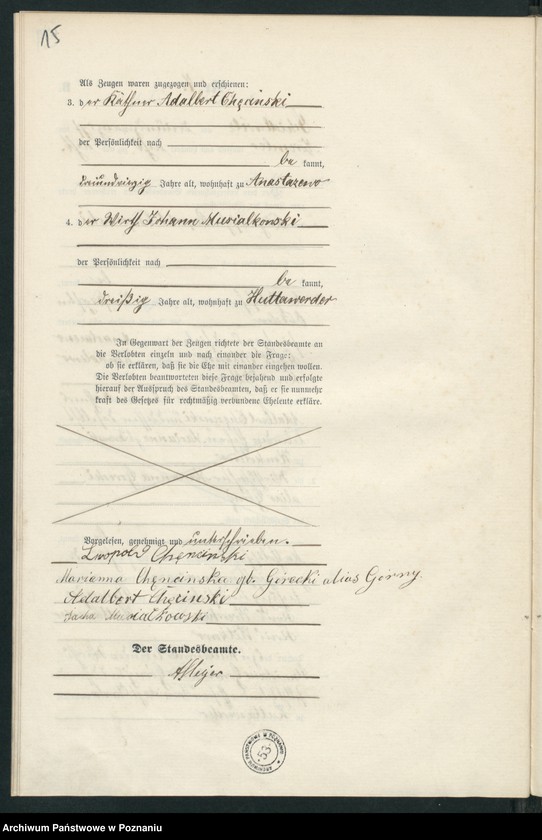 15
Als Zeugen waren zugezogen und erschienen:
3. der Käthner Adalbert Chęcinski
der Persönlichkeit nach
be kannt,
dreiundvierzig Jahre alt, wohnhaft zu Anastazewo
4. der Wirth Johann Musialkowski
der Persönlichkeit nach
be kannt,
dreißig Jahre alt, wohnhaft zu Huttawerder
In Gegenwart der Zeugen richtete der Standesbeamte an
die Verlobten einzeln und nach einander die Frage:
ob sie erklären, daß sie die Ehe mit einander eingehen wollen.
Die Verlobten beantworteten diese Frage bejahend und erfolgte
hierauf der Ausspruch des Standesbeamten, daß er sie nunmehr
kraft des Gesetzes für rechtmäßig verbundene Eheleute erkläre.
Vorgelesen, genehmigt und unterschrieben.
Leopold Chęncinski
Marianna Chęncinska gb. Górecki alias Górny.
Adalbert Chęcinski
Musialkowski
Der Standesbeamte.
ARCHIWUM PAŃSTWOWE W POZNANIU
53
Archiwum Państwowe w Poznaniu